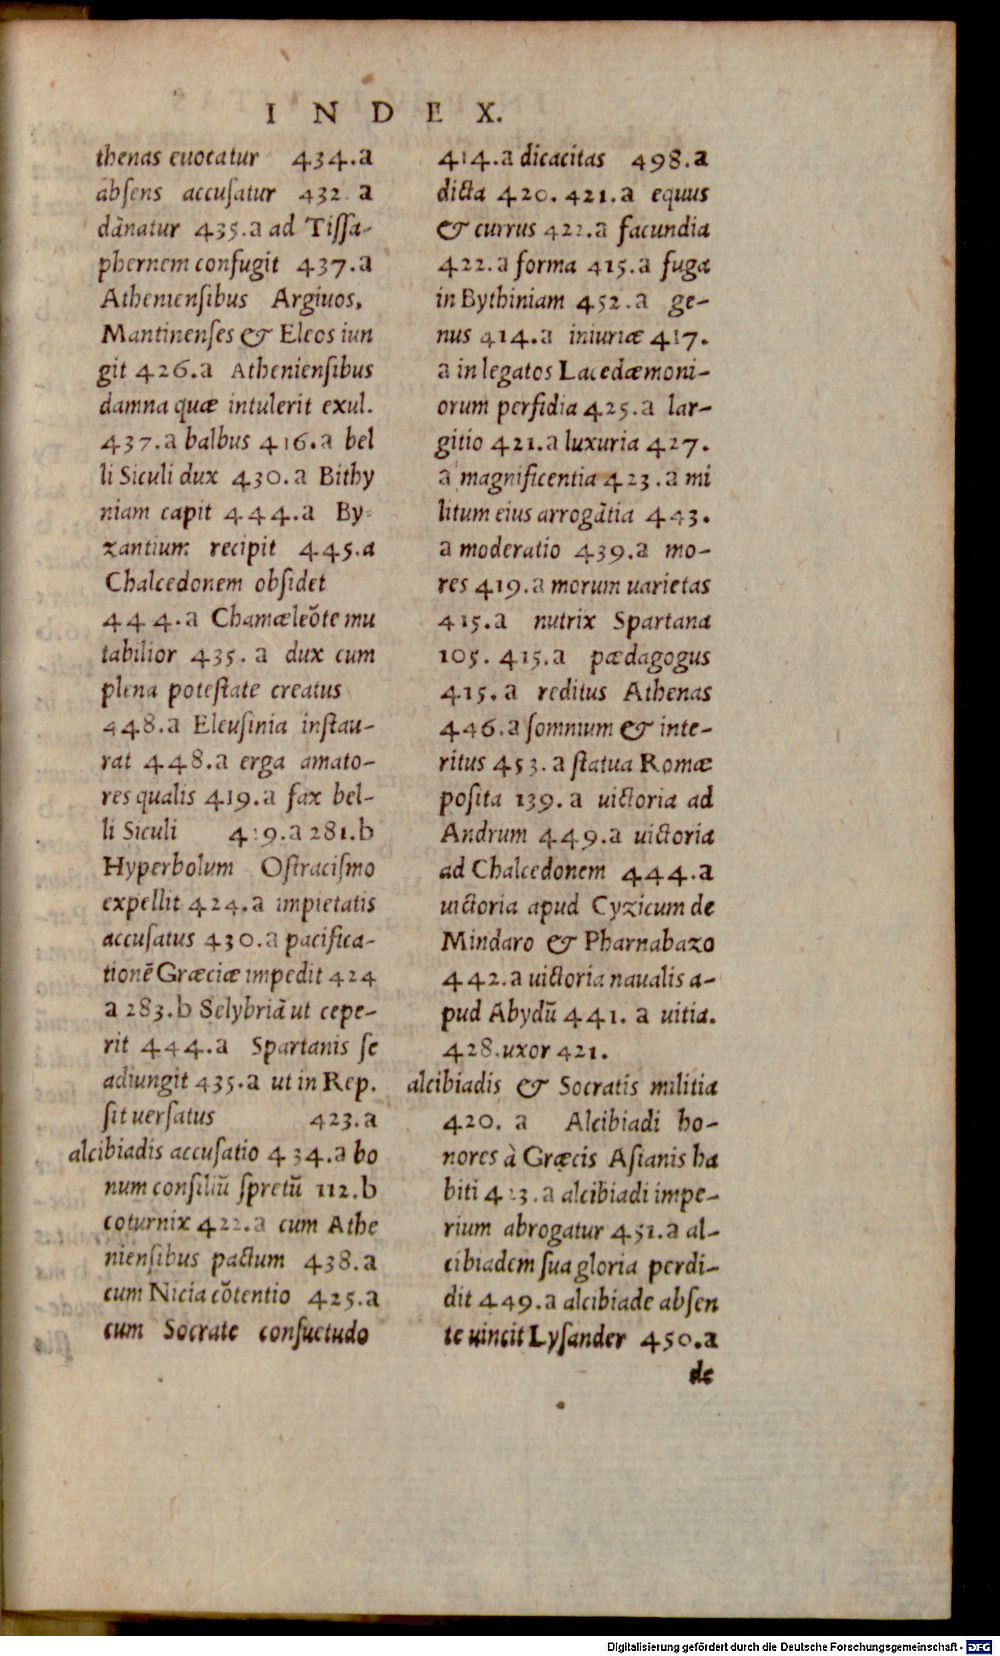 INDEX.
thenas euocatur 434.a
absens accusatur 432 a
dānatur 435.a ad Tissa-
phernem confugit 437.a
Atheniensibus Argiuos,
Mantinenses & Eleos iun
git 426.a Atheniensibus
damna quæ intulerit exul.
437.a balbus 416.a bel
li Siculi dux 430.a Bithy
niam capit 444.a By-
zantium recipit 445.a
Chalcedonem obsidet
444.a Chamæleōte mu
tabilior 435.a dux cum
plena potestate creatus
448.a Eleusinia instau-
rat 448.a erga amato-
res qualis 419.a fax bel-
li Siculi 429.a 281.b
Hyperbolum Ostracismo
expellit 424.a impietatis
accusatus 430.a pacifica-
tionē Græciæ impedit 424
a 283.b Selybriā ut cepe-
rit 444.a Spartanis se
adiungit 435.a ut in Rep.
sit uersatus 423.a
alcibiadis accusatio 434.a bo
num consiliū spretū 112.b
coturnix 422.a cum Athe
niensibus pactum 438.a
cum Nicia cōtentio 425.a
cum Socrate consuetudo
414.a dicacitas 498.a
dicta 420. 421.a equus
& currus 422.a facundia
422.a forma 415.a fuga
in Bythiniam 452.a ge-
nus 414.a iniuriæ 417.
a in legatos Lacedæmoni-
orum perfidia 425.a lar-
gitio 421.a luxuria 427.
a magnificentia 423.a mi
litum eius arrogātia 443.
a moderatio 439.a mo-
res 419.a morum uarietas
415.a nutrix Spartana
105. 415.a pædagogus
415.a reditus Athenas
446.a somnium & inte-
ritus 453.a statua Romæ
posita 139.a uictoria ad
Andrum 449.a uictoria
ad Chalcedonem 444.a
uictoria apud Cyzicum de
Mindaro & Pharnabazo
442.a uictoria naualis a-
pud Abydū 441. a uitia.
428.uxor 421.
alcibiadis & Socratis militia
420. a Alcibiadi ho-
nores à Græcis Asianis ha
biti 423.a alcibiadi impe-
rium abrogatur 451.a al-
cibiadem sua gloria perdi-
dit 449.a alcibiade absen
te uincit Lysander 450.a
de
Digitalisierung gefördert durch die Deutsche Forschungsgemeinschaft - DFG